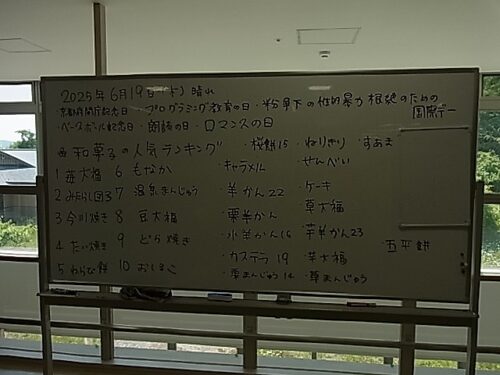 2025年6月19日(木) 晴れ
京都府開庁記念日・プログラミング教育の日・紛争下の性的暴力根絶のための
国際デー
・ベースボール記念日・朗読の日・ロマンスの日
和菓子の人気ランキング ・桜餅15 ・ねりきり ・すあま
1 苺大福 6 もなか ・キャラメル ・せんべい
2 みたらし団子 7 温泉まんじゅう ・羊かん22 ・ケーキ
3 今川焼き 8 豆大福 ・栗羊かん ・草大福
4 たい焼き 9 どら焼き ・水羊かん16 ・芋羊かん23 ・五平餅
5 わらび餅 10 おはぎ ・カステラ19 ・芋大福
・栗まんじゅう14 ・草まんじゅう